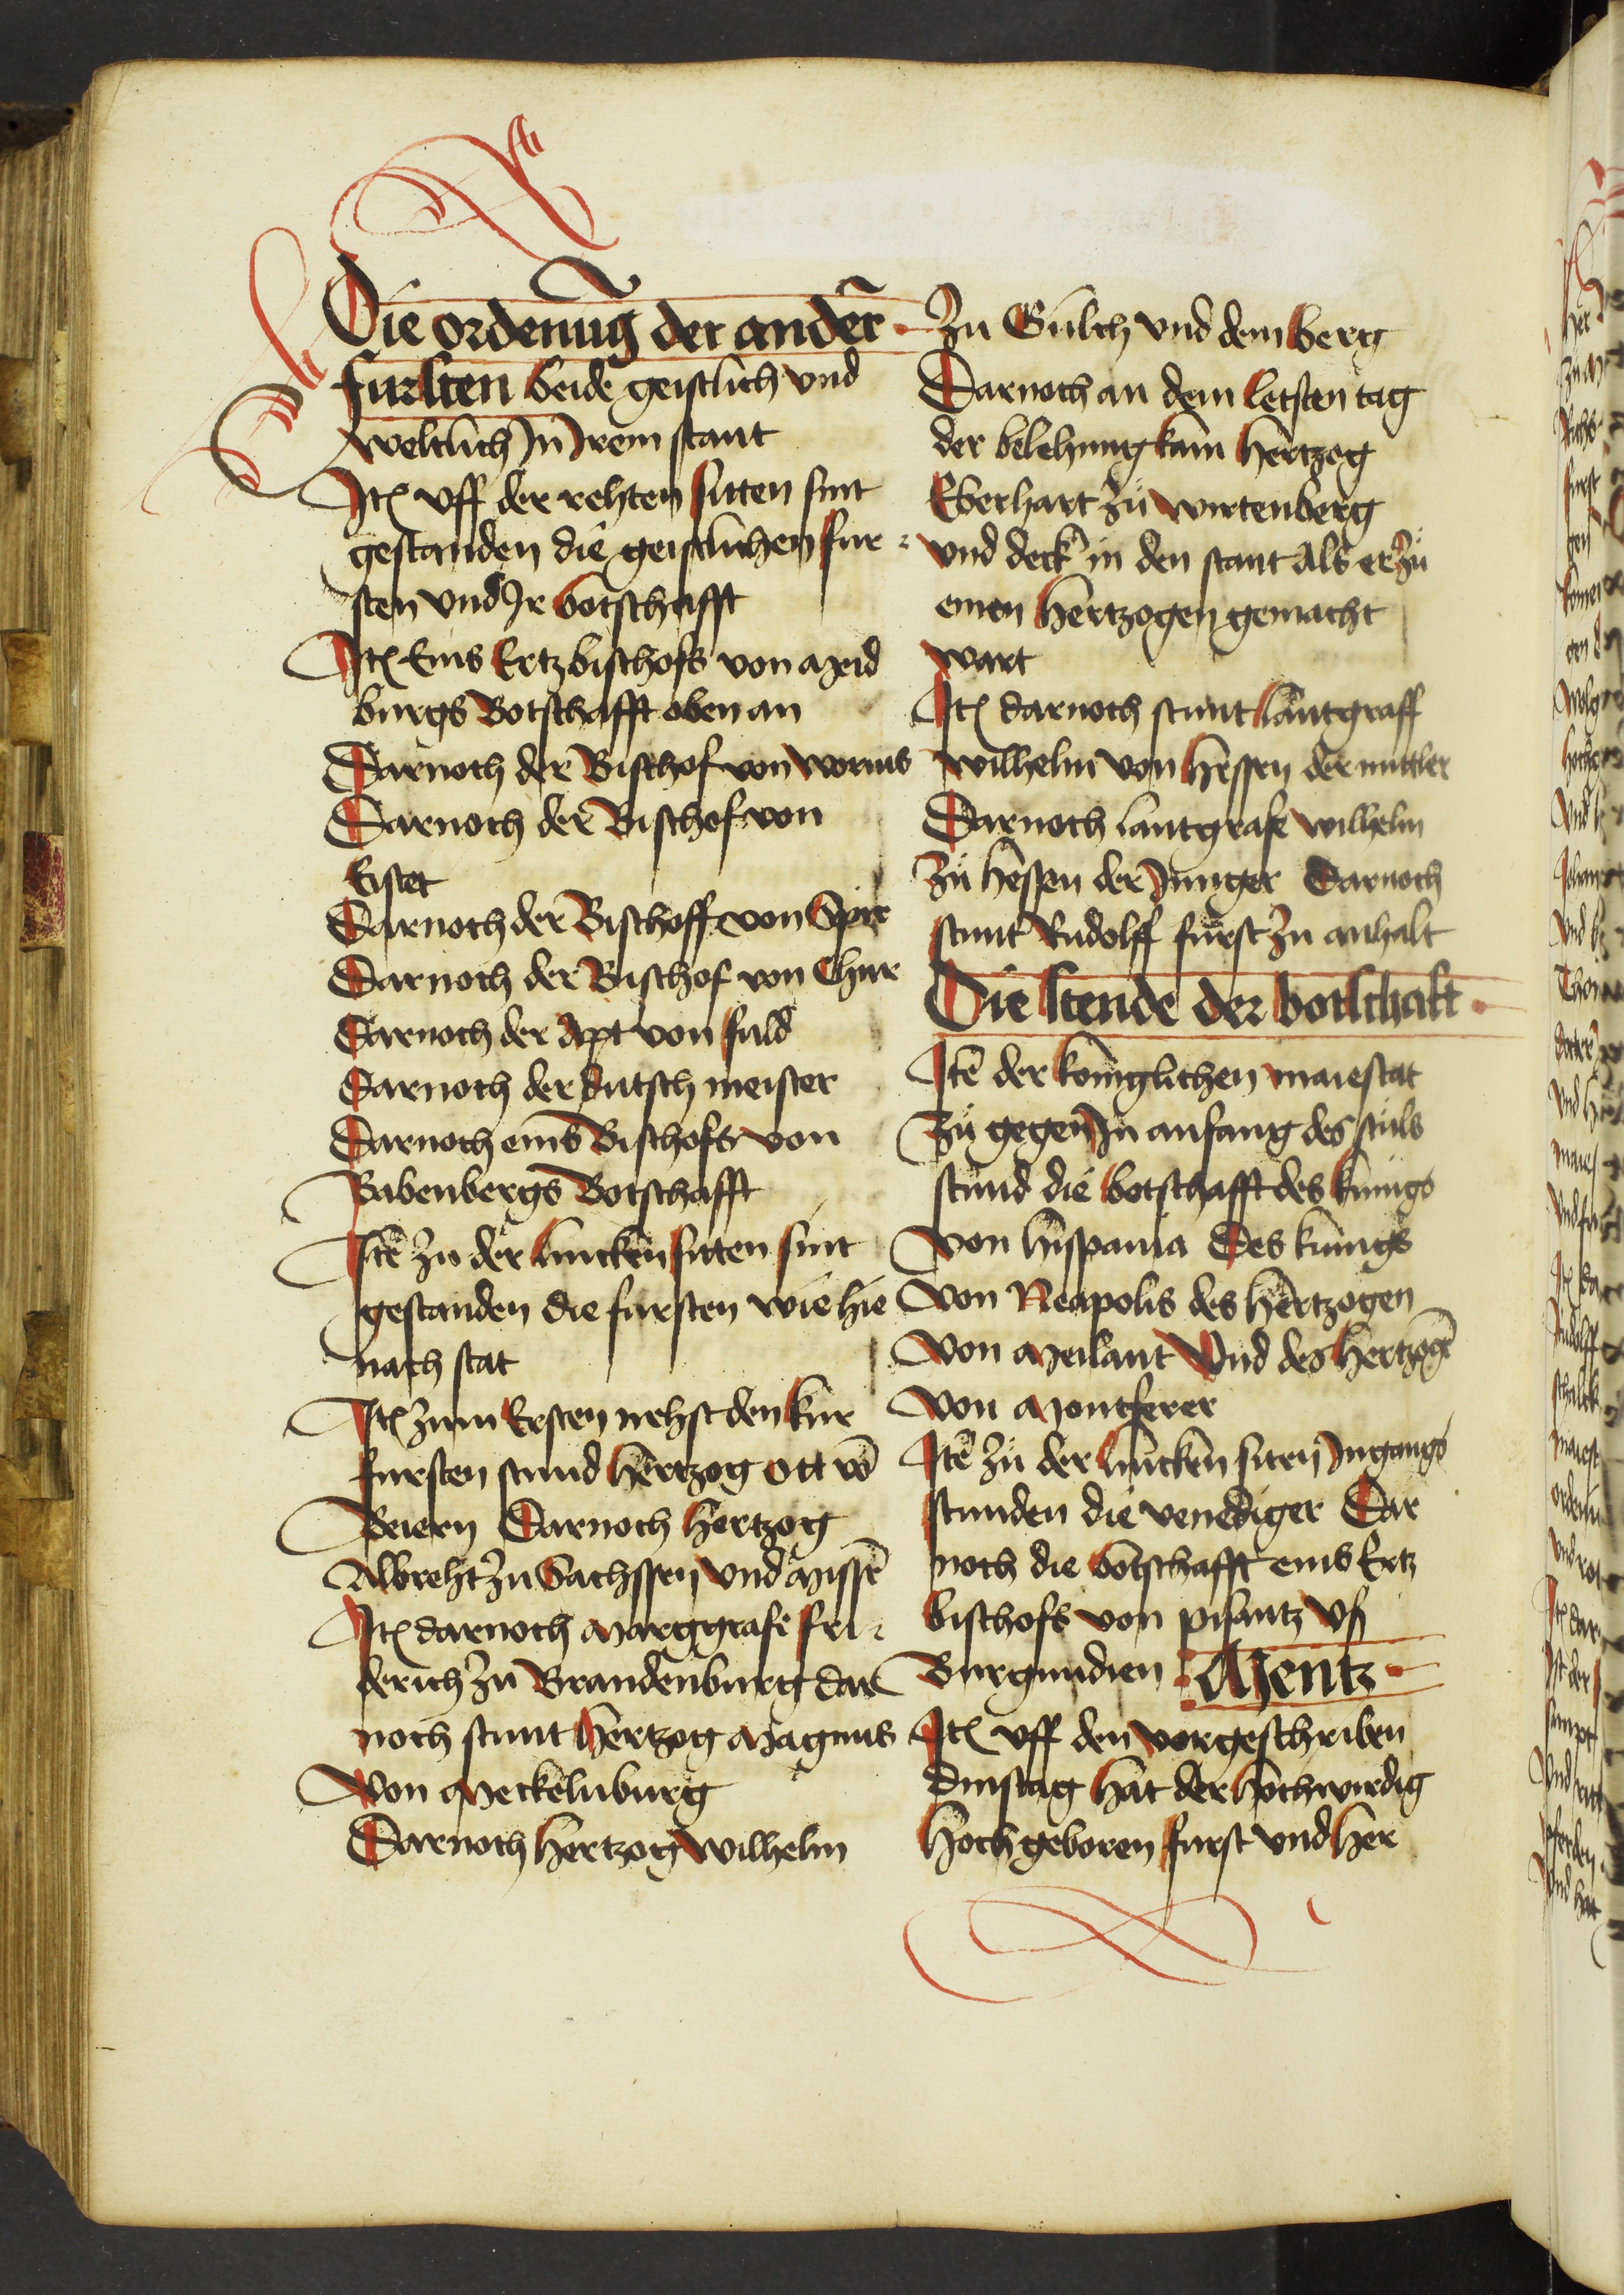 Die ordenūg der anderꝛ̄
furſten beide geiſtlich vnd
weltlich In Irem ſtant
Itē vff der rehten ſitten ſint
geſtanden die geiſtlichen fur⸗
ſten vnd Ir botſchafft
Itē Eins Ertzbiſchofs von meid
burgs Botſchafft oben an
Darnoch der Biſchof von worms
Darnoch der Biſchof von
Eiſtet
Darnoch der Biſchoff von Spir
Darnoch der Biſchof von Chur
Darnoch der Apt von fuld
Darnoch der dutſch meiſter
Darnoch eins Biſchofs von
Babenbergs Botſchafft
Itē zu der lincken ſitten ſint
geſtanden die furſten wie hie
nach ſtat
Itē zum Erſten nehſt den kur
furſten ſtund hertzog ott vō
Beiern Darnoch hertzog
Albreht zu Sachſſen vnd miſſē
Itē darnoch marggrafe fri⸗
derich zu Brandenburg dar
noch ſtunt hertzog magnus
Von meckelnburg
Darnoch hertzog wilhelm
zu Gulch vnd dem berg
Darnoch an dem letſten tag
der belehnung kam hertzog
Eberhart zu wirtenberg
vnd deck in den ſtant als er zu
einen hertzogen gemacht
wart
Itē darnoch ſtunt lantgraff
wilhelm von heſſen der mittler
Darnoch lantgrafe wilhelm
zu heſſen der Junger Darnoch
ſtunt Rudolff furſt zu anhalt
Die ſtende der botſchaft
Itē der koniglichen maieſtat
zu gegen In anfang des ſtuls
ſtund die botſchafft des kunigs
von hiſpania Des kunigs
von Neapolis des hertzogen
von meilant Vnd des hertzogē
von montferer
Itē zu der lincken ſiten Ingangs
ſtunden die venediger Dar
noch die botſchafft eins Ertz
biſchofs von piſantz vſ
Burgundien Mentz
Itē vff den vorgeſchriben
dinſtag hat der hochwirdig
hochgeboren furſt vnd her